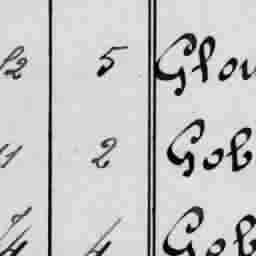 12 5 Glou
11 2 Gob
4 Gob